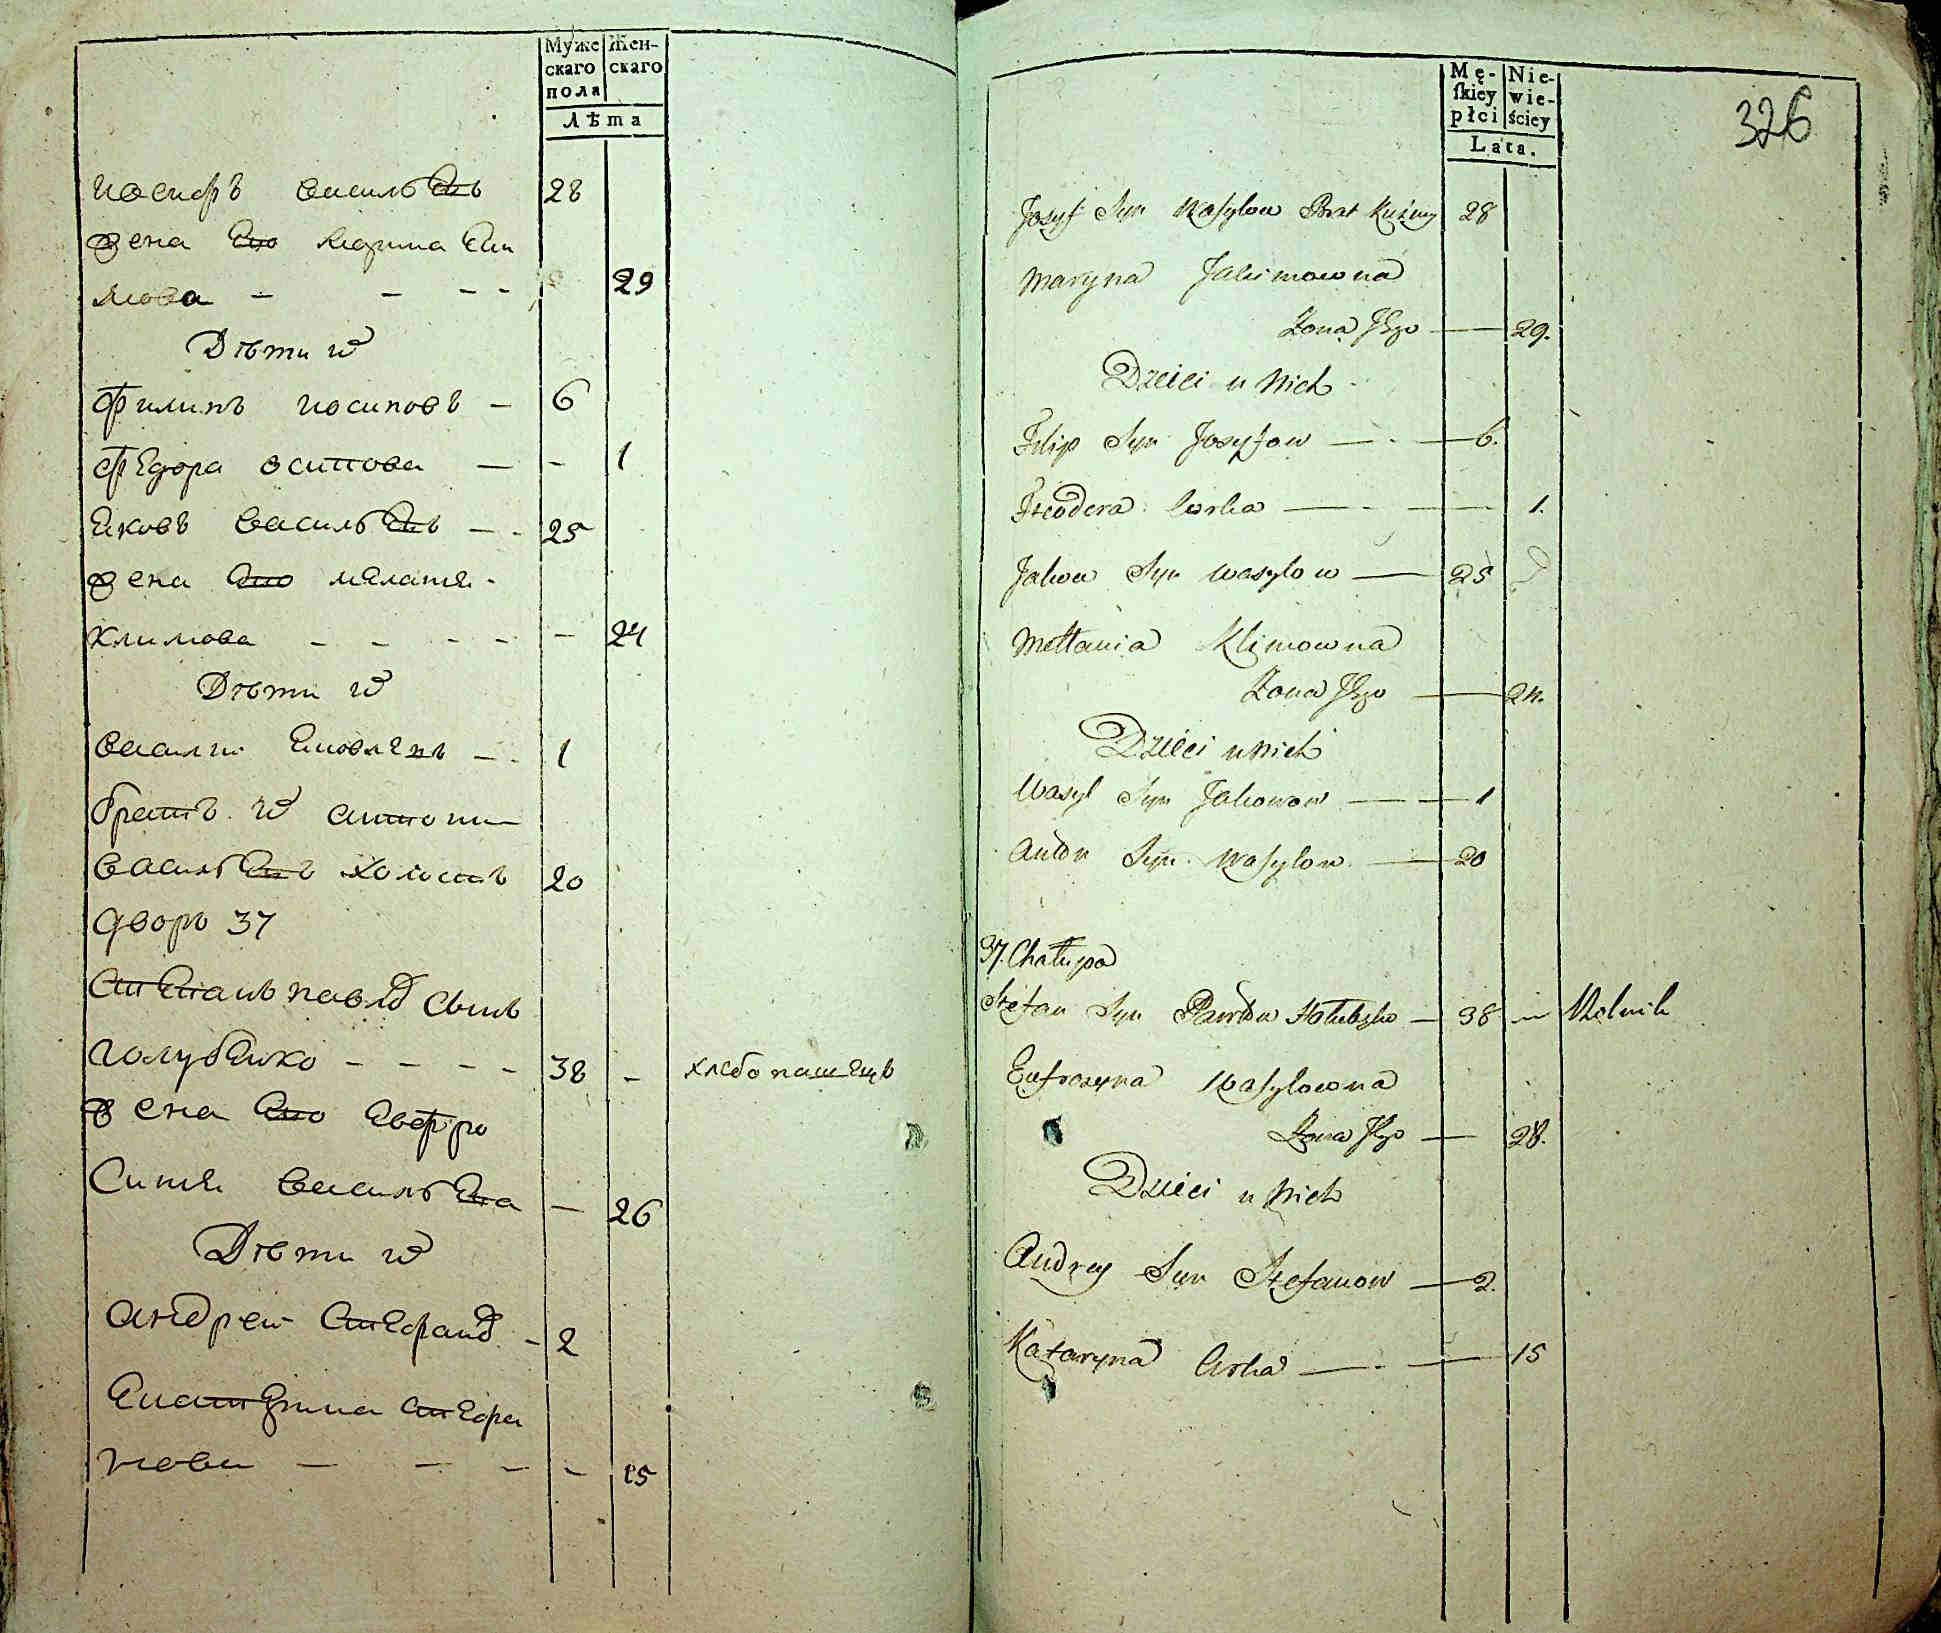 Муже
скаго
пола
Жен-
скаго
Лѣта
иосифъ василь евъ 28
жена Его марина Еки
мова - - - - 29
Дѣти их
филипъ иосиповъ - 6
федора осипова - - 1
Яковъ василь евъ - - 25
жена Его меланія -
климова - - - - - 24
Дѣти их
василии Яковлевъ - - 1
братъ их антони
василь евъ холостъ 20
дворъ 37
Степанъ павлов сынъ
голубенко - - - - 38 - хлебопашецъ
жена Его Евфро
Синия василь Ева - 26
Дѣти их
андреи Стефанов - 2
Екатерина стефа
нова - - - - 15
Mę-
ſkiey
płci
Nie-
wie-
ściey
Lata.
326
Jozyf Syn Wasylow Brat Kuźmy 28
Maryna Jakimowna
Żona Jego — 29.
Dzieci u Nich
Filip Syn Jozyfow — . — 6.
Fteodora Corka — . — 1.
Jakow Syn Wasylow — 25
Mełłania Klimowna
Żona Jego — 24.
Dzieci u Nich
Wasyl Syn Jakowow — — 1
Anton Syn Wasylow — 20
37. Chałupa
Stefan Syn Pawłow Hołubęko — 38 — Rolnik
Eufrozyna Wasylowna
Żona Jego — 28.
Dzieci u Nich
Andrey Syn Stefanow — 2.
Kataryna Corka — . — 15